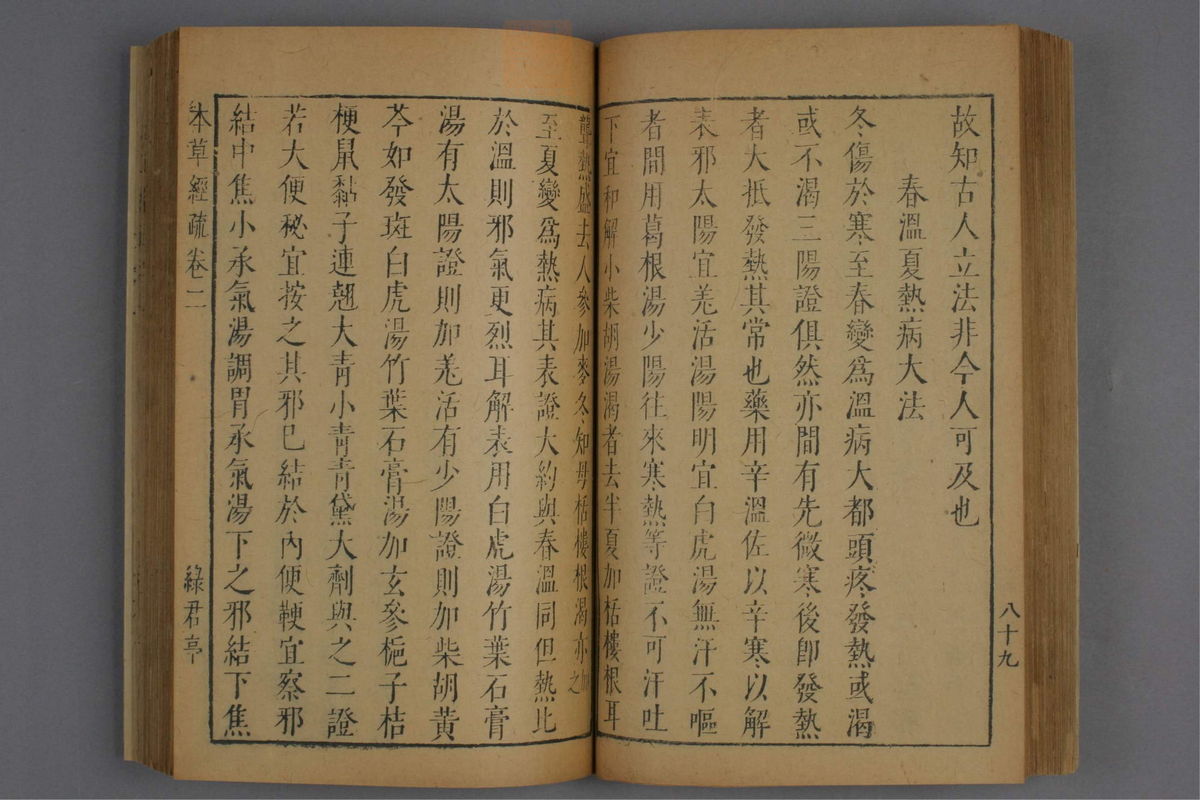 故知古人立法非今人可及也
春溫夏熱病大法
冬傷於寒至春變爲溫病大都頭疼發熱或渴
或不渴三陽證俱然亦間有先微寒後卽發熱
者大抵發熱其常也藥用辛溫佐以辛寒以解
表邪太陽宜羌活湯陽明宜白虎湯無汗不嘔
者間用葛根湯少陽往來寒熱等證不可汗吐
下宜和解小柴胡湯渴者去半夏加栝樓根耳
聾熱盛去人參加麥冬知母栝樓根渴亦加之
至夏變爲熱病其表證大約與春溫同但熱比
於溫則邪氣更烈耳解表用白虎湯竹葉石膏
湯有太陽證則加羌活有少陽證則加柴胡黃
芩如發斑白虎湯竹葉石膏湯加玄參梔子桔
梗鼠黏子連翹大青小青青黛大劑與之二證
若大便秘宜按之其邪已結於內便鞕宜察邪
結中焦小承氣湯調胃承氣湯下之邪結下焦
本草經疏卷二
綠君亭
八十九